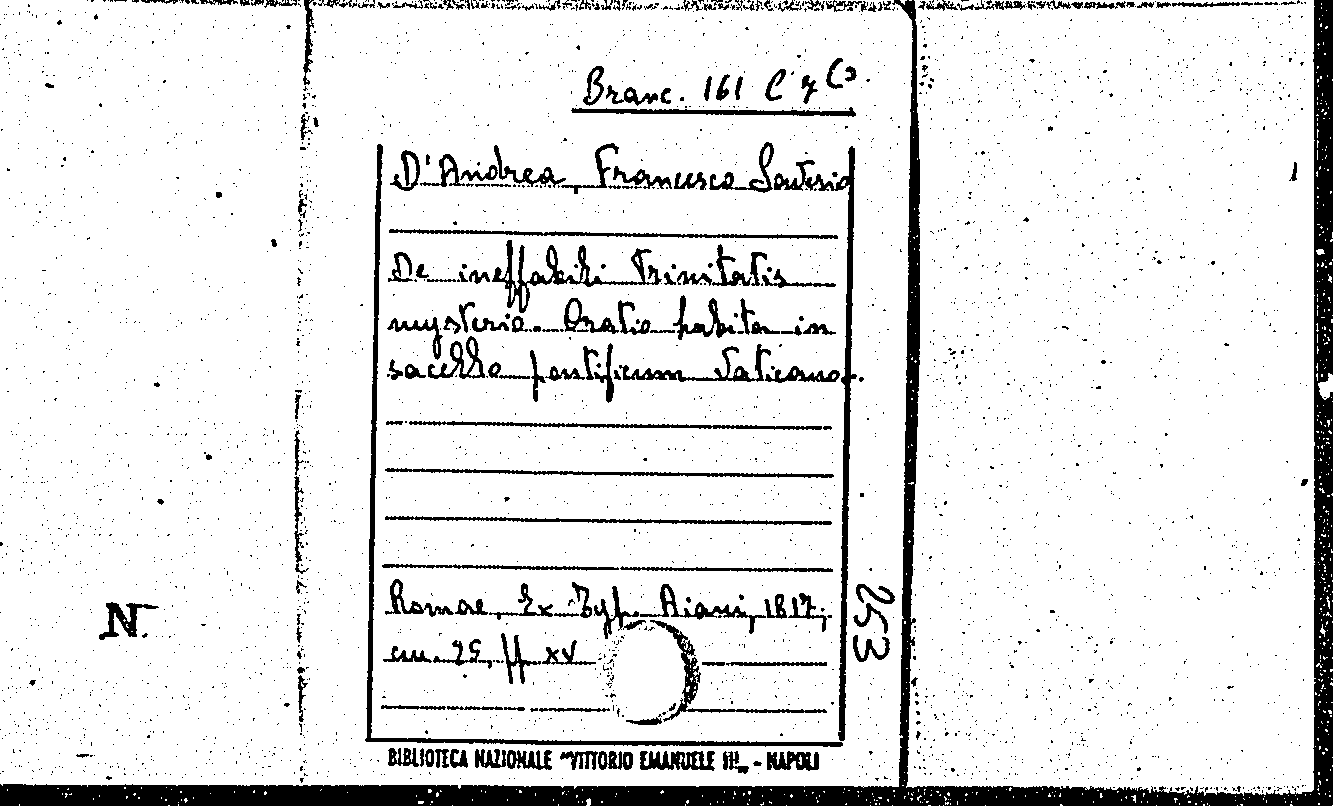 Branc. 161 C 7 (3.
D'Andrea, Francesco Saverio
De ineffabili Trinitatis
mysterio. Oratio habita in
sacello pontificum Vaticano.
Romae, Ex Typ. Aiani, 1817;
cm. 25, pp XV
253
N
BIBLIOTECA NAZIONALE "VITTORIO EMANUELE III„ - NAPOLI